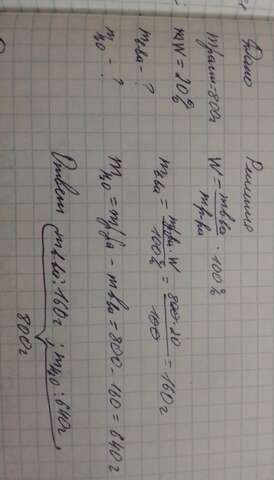 Дано
mраст=800г
W=20%
mв-ва - ?
mH2O - ?
Решение
W = mв-ва / mр-ра · 100%
mв-ва = mр-ра · W / 100% = 800·20 / 100 = 160г
mH2O = mр-ра - mв-ва = 800 - 160 = 640г
Ответ mв-ва: 160г ; mH2O : 640г
800г